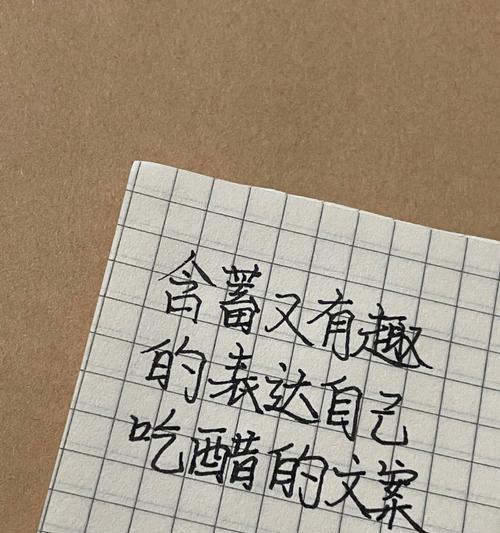 含蓄又有趣
的表达自己
吃醋的文案